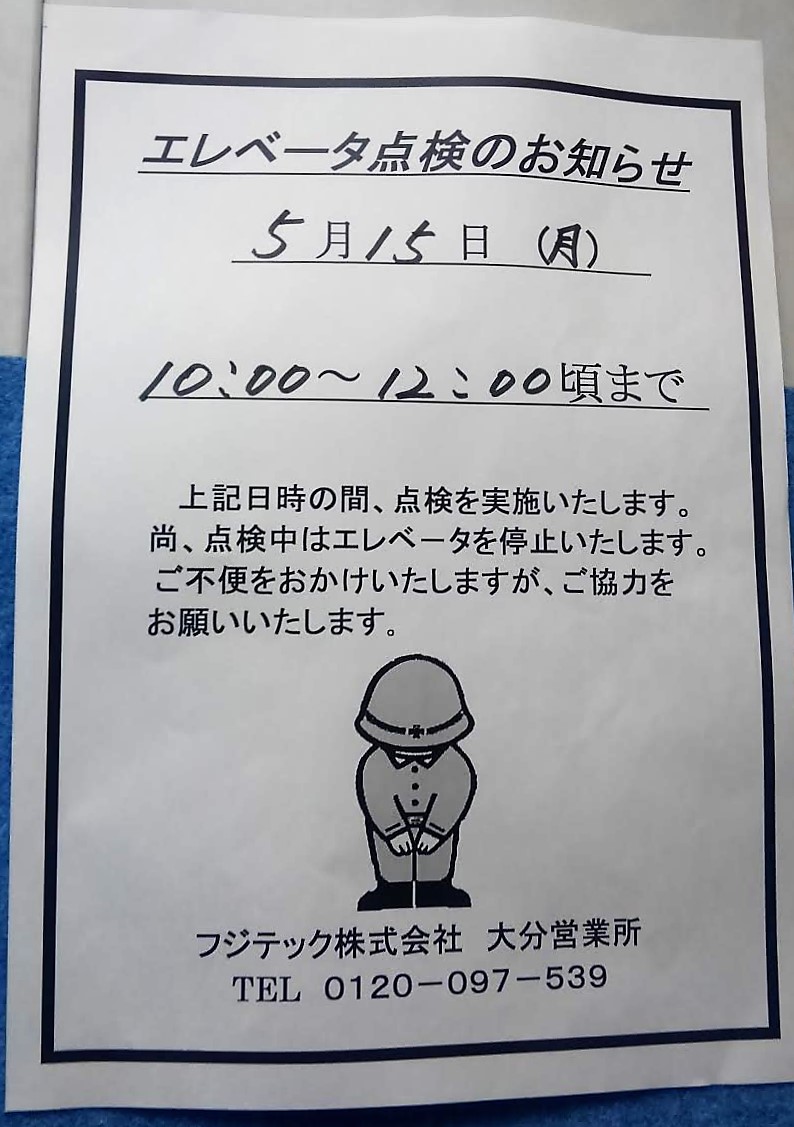 エレベータ点検のお知らせ
5月15日(月)
10:00〜12:00頃まで
上記日時の間、点検を実施いたします。
尚、点検中はエレベータを停止いたします。
ご不便をおかけいたしますが、ご協力を
お願いいたします。
フジテック株式会社 大分営業所
TEL 0120−097−539